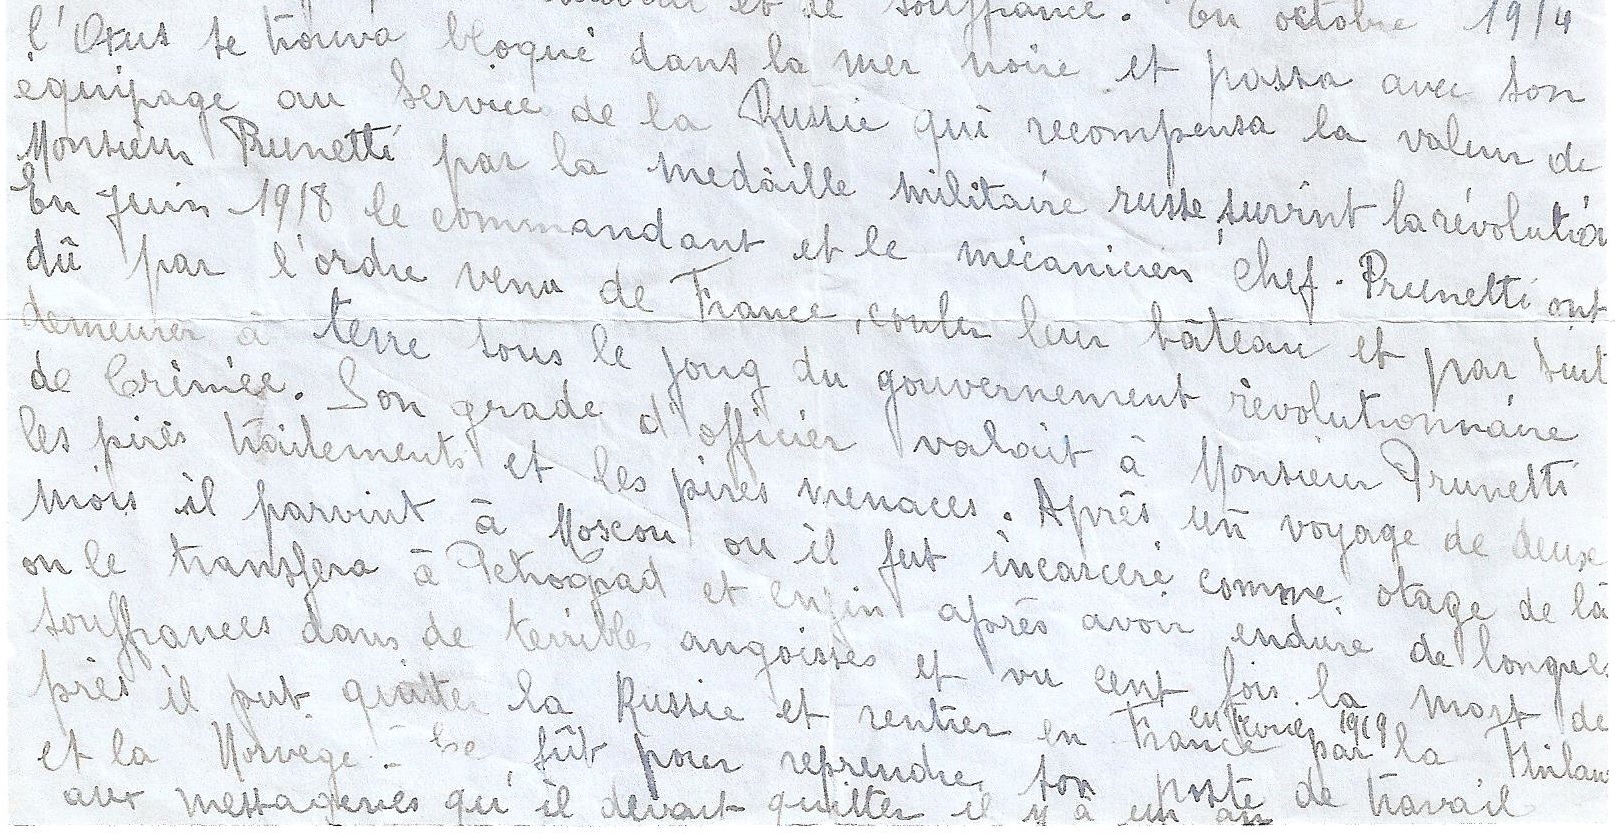 et de souffrance. En octobre 1914
l'Oxus se trouva bloqué dans la mer noire et passa avec son
équipage au service de la Russie qui recompensa la valeur de
Monsieur Prunetti par la medàille militaire russe, survint la révolution
En Juin 1918 le commandant et le mécanicien chef. Prunetti ont
dû par l'ordre venu de France, couler leur bâteau et par suit
demeurer à terre sous le joug du gouvernement révolutionnaire
de Crimée. Son grade d'officier valait à Monsieur Prunetti
les pires traitements et les pires menaces. Après un voyage de deux
mois il parvint à Moscou ou il fut incarcéré comme otage de là
on le transfera à Petrograd et enfin après avoir enduré de longues
souffrances dans de terribles angoisses et vu cent fois la mort de
près il put quitter la Russie et rentrer en France en fevrier 1919 par la Finlan
et la Norvege - Ce fût pour reprendre son poste de travail
aux messageries qu'il devait quitter il y à un an